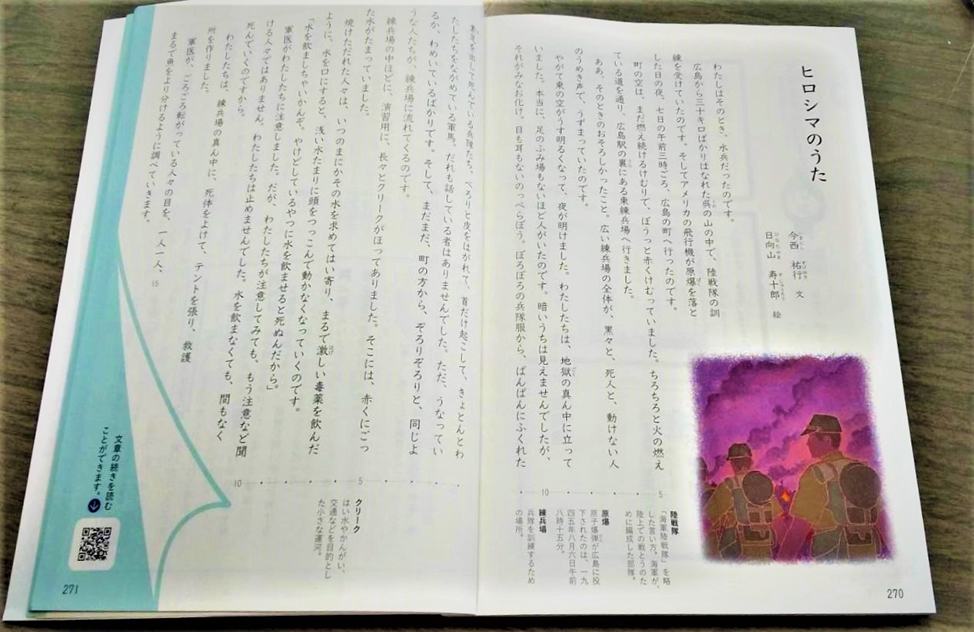 ヒロシマのうた
今西 祐行 文
日向山 寿十郎 絵
わたしはそのとき、水兵だったのです。
広島から三十キロばかりはなれた呉の山の中で、陸戦隊の訓
練を受けていたのです。そしてアメリカの飛行機が原爆を落と
した日の夜、七日の午前三時ごろ、広島の町へ行ったのです。
町の空は、まだ燃え続けるけむりで、ぼうっと赤くけむっていました。ちろちろと火の燃え
ている道を通り、広島駅の裏にある東練兵場へ行きました。
ああ、そのときのおそろしかったこと。広い練兵場の全体が、黒々と、死人と、動けない人
のうめき声で、うずまっていたのです。
やがて東の空がうす明るくなって、夜が明けました。わたしたちは、地獄の真ん中に立って
いました。本当に、足のふみ場もないほど人がいたのです。暗いうちは見えませんでしたが、
それがみなお化け。目も耳もないのっぺらぼう。ぼろぼろの兵隊服から、ぱんぱんにふくれた
陸戦隊
「海軍陸戦隊」を略
した言い方。海軍が、
陸上での戦とうのた
めに編成した部隊。
原爆
原子爆弾が広島に投
下されたのは、一九
四五年八月六日午前
八時十五分。
練兵場
兵隊を訓練するため
の場所。
5
10
270
素足を出して死んでいる兵隊たち。べろりと皮をはがれて、首だけ起こして、きょとんとわ
たしたちをながめている軍馬。だれも話している者はありませんでした。ただ、うなってい
るか、わめいているばかりです。そして、まだまだ、町の方から、ぞろりぞろりと、同じよ
うな人たちが、練兵場に流れてくるのです。
練兵場の中ほどに、演習用に、長々とクリークがほってありました。そこには、赤くにごっ
た水がたまっていました。
焼けただれた人々は、いつのまにかその水を求めてはい寄り、まるで激しい毒薬を飲んだ
ように、水を口にすると、浅い水たまりに頭をつっこんで動かなくなっていくのです。
「水を飲ましちゃいかんぞ。やけどしているやつに水を飲ませると死ぬんだから」。
軍医がわたしたちに注意しました。だが、わたしたちが注意してみても、もう注意など聞
ける人々ではありません。わたしたちは止めませんでした。水を飲まなくても、間もなく
死んでいくのですから。
わたしたちは、練兵場の真ん中に、死体をよけて、テントを張り、救護
所を作りました。
軍医が、ごろごろ転がっている人々の目を、一人一人、
まるで魚をより分けるように調べていきます。
クリーク
はい水やかんがい、
交通などを目的とし
た小さな運河。
5
10
15
文章の続きを読む
ことができます。
271